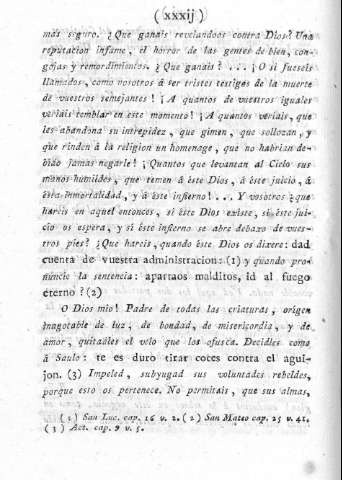 ( xxxij )
mas siguro. ¿Que ganais revelandoos contra Dios? Una
reputacion infame, el horror de las gentes de bien, con-
gojas y remordimientos. ¿Que ganais?.... ¡O si fueseis
llamados, como nosotros á ser tristes testigos de la muerte
de vuestros semejantes! ¡A quantos de vuestros iguales
veriais temblar en este momento! ¡A quantos veriais, que
les abandona su intrepidez, que gimen, que sollozan, y
que rinden á la religion un homenage, que no habrian de-
bido jamas negarle! ¡Quantos que levantan al Cielo sus
manos humildes, que temen á éste Dios, á éste juicio, á
ésta inmortalidad, y á éste infierno!... Y vosotros ¿que
hareis en aquel entonces, si éste Dios existe, si éste jui-
cio os espera, y si éste infierno se abre debaxo de vues-
tros pies? ¿Que hareis, quando éste Dios os dixere: dad
cuenta de vuestra administracion: (1) y quando pro-
nuncie la sentencia: apartaos malditos, id al fuego
eterno? (2)
O Dios mio! Padre de todas las criaturas, origen
inagotable de luz, de bondad, de misericordia, y de
amor, quitadles el velo que los ofusca. Decidles como
á Saulo: te es duro tirar coces contra el agui-
jon. (3) Impeled, subyugad sus voluntades rebeldes,
porque esto os pertenece. No permitais, que sus almas,
(1) San Luc. cap. 16 v. 2. (2) San Mateo cap. 25 v. 41.
(3) Act. cap. 9 v. 5.